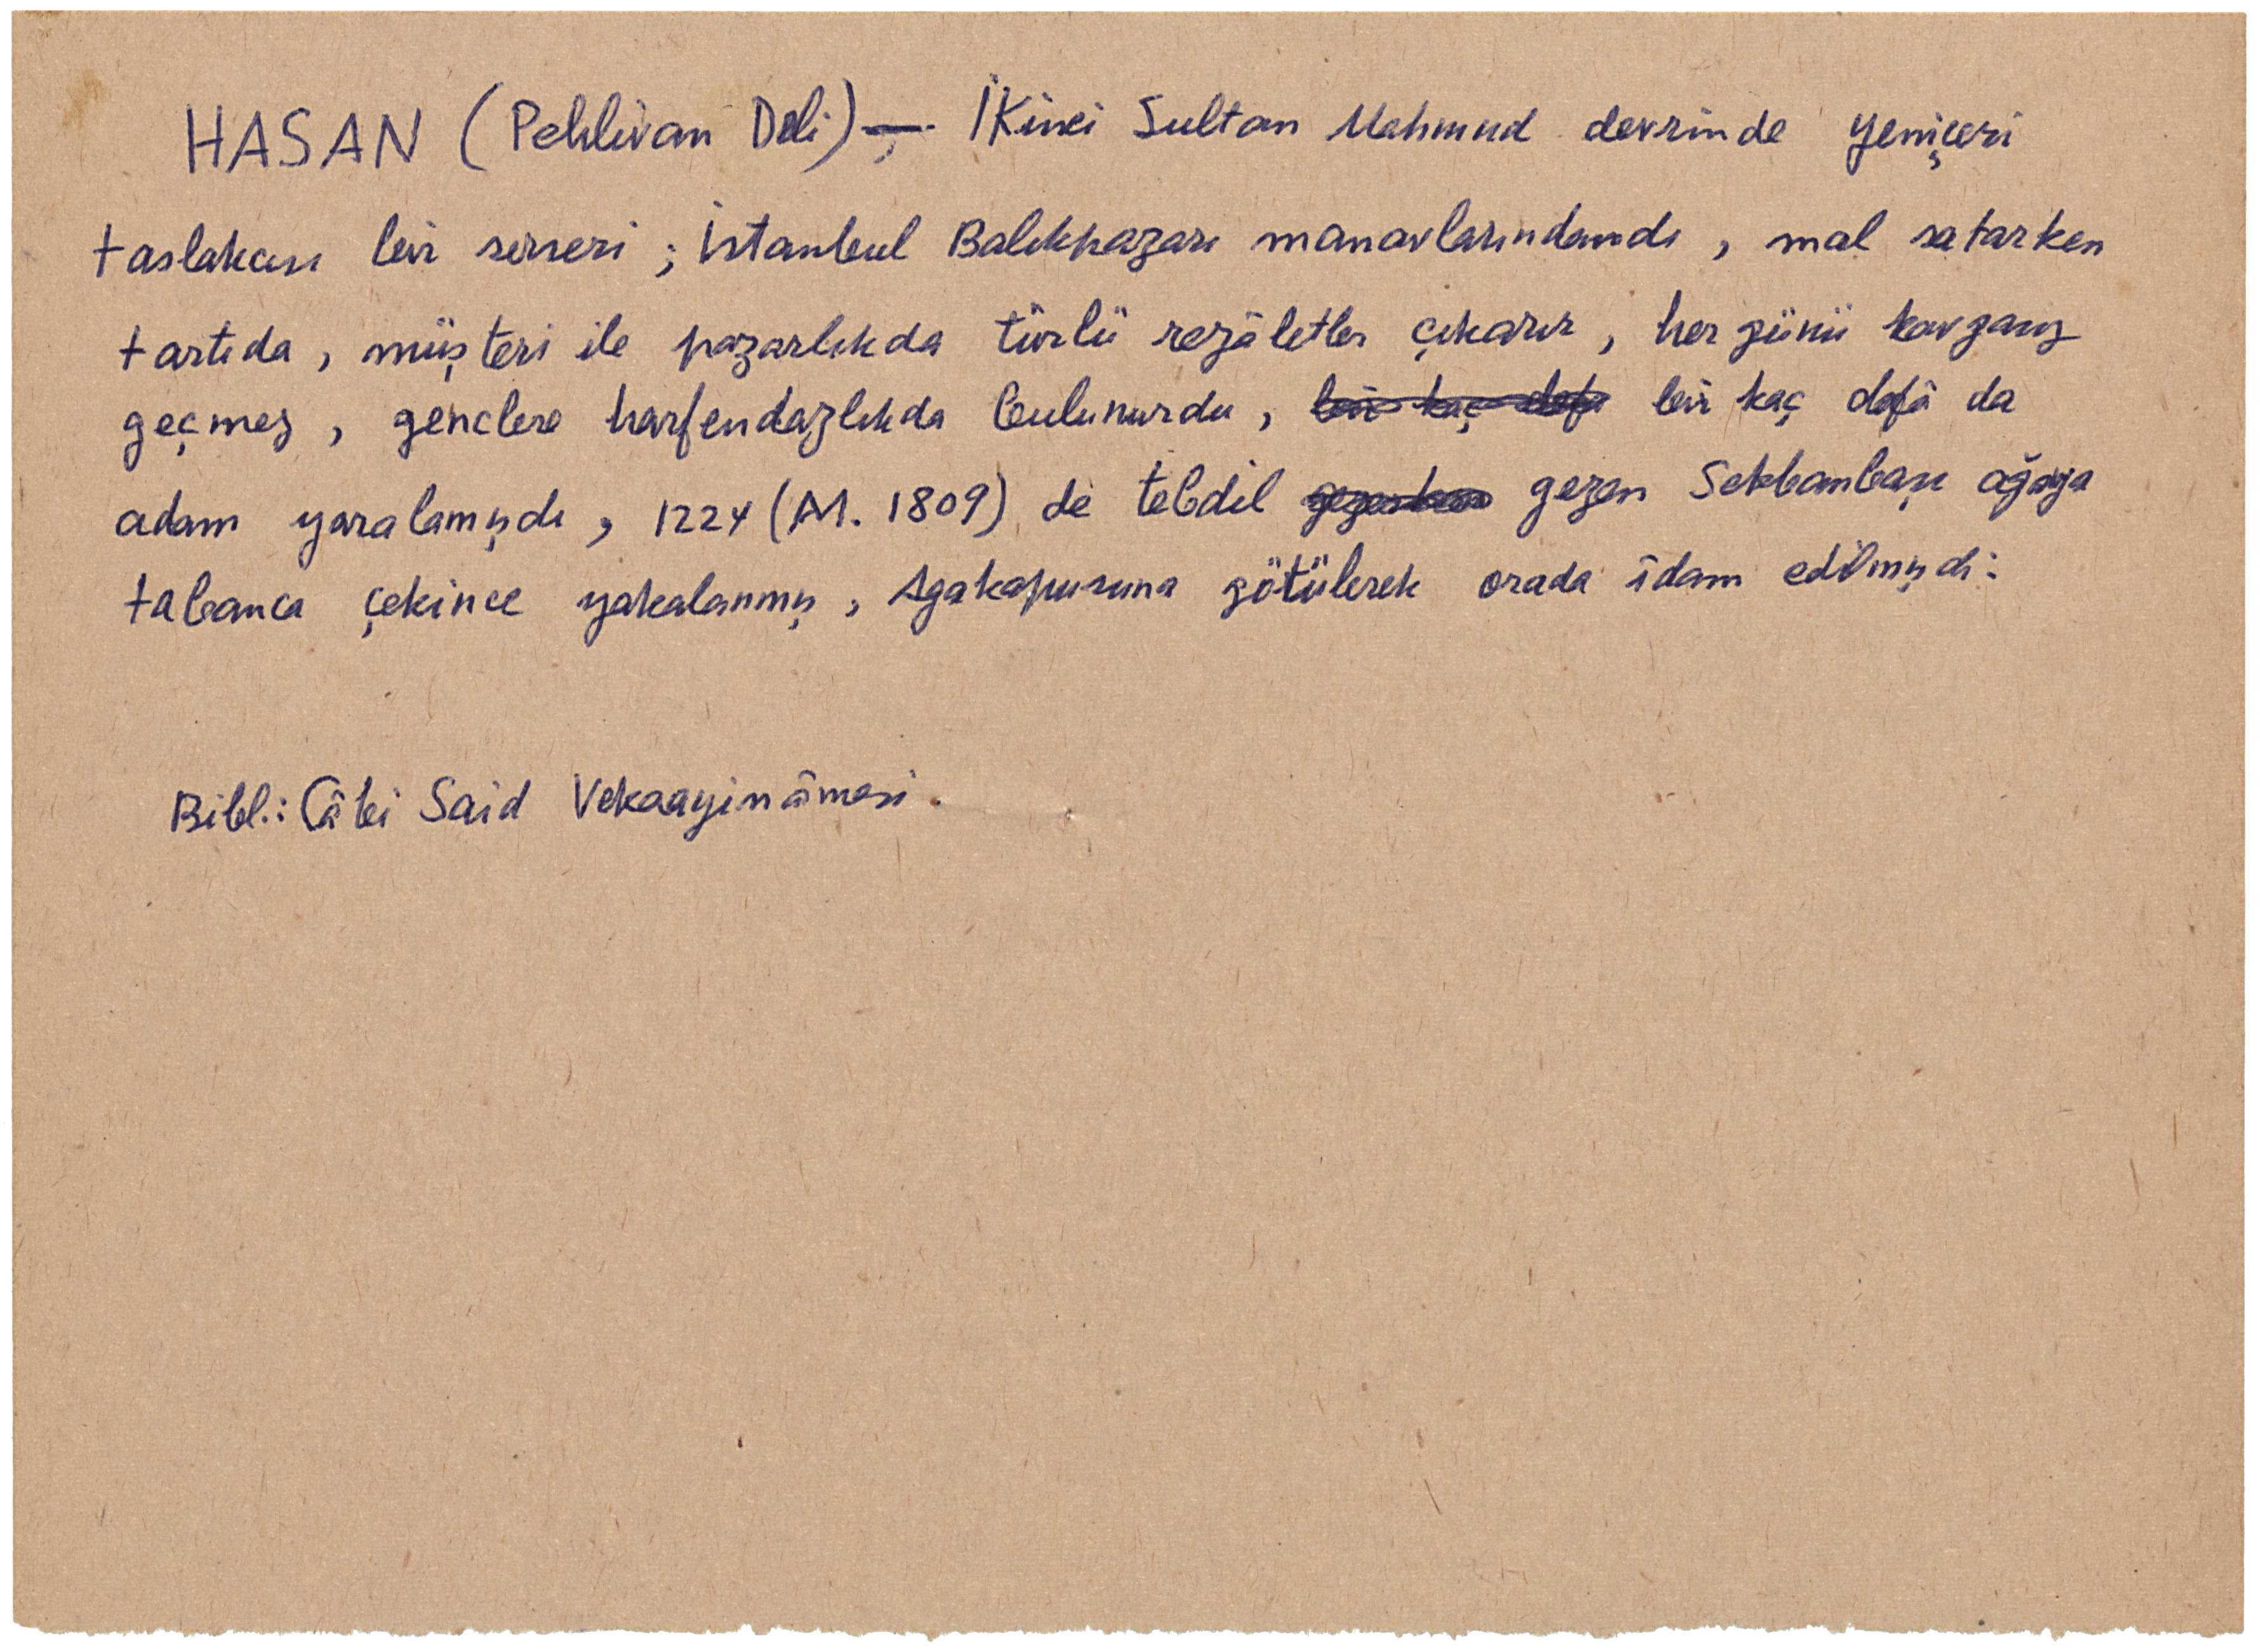 HASAN (Pehlivan Deli) — İkinci Sultan Mahmud devrinde yeniçeri
taslakcısı bir serseri ; İstanbul Balıkpazarı manavlarındandı , mal satarken
tartıda , müşteri ile pazarlıkda türlü rezâletler çıkarır , her günü kavgasız
geçmez , genclere harfendazlıkda bulunurdu , ~~bir kaç defa~~ bir kaç defâ da
adam yaralamışdı , 1224 (M. 1809) de tebdil ~~gezerken~~ gezen Sekbanbaşı ağaya
tabanca çekince yakalanmış , Agakapusuna götülerek orada îdam edilmişdi .
Bibl.: Câbi Said Vekaayinâmesi .